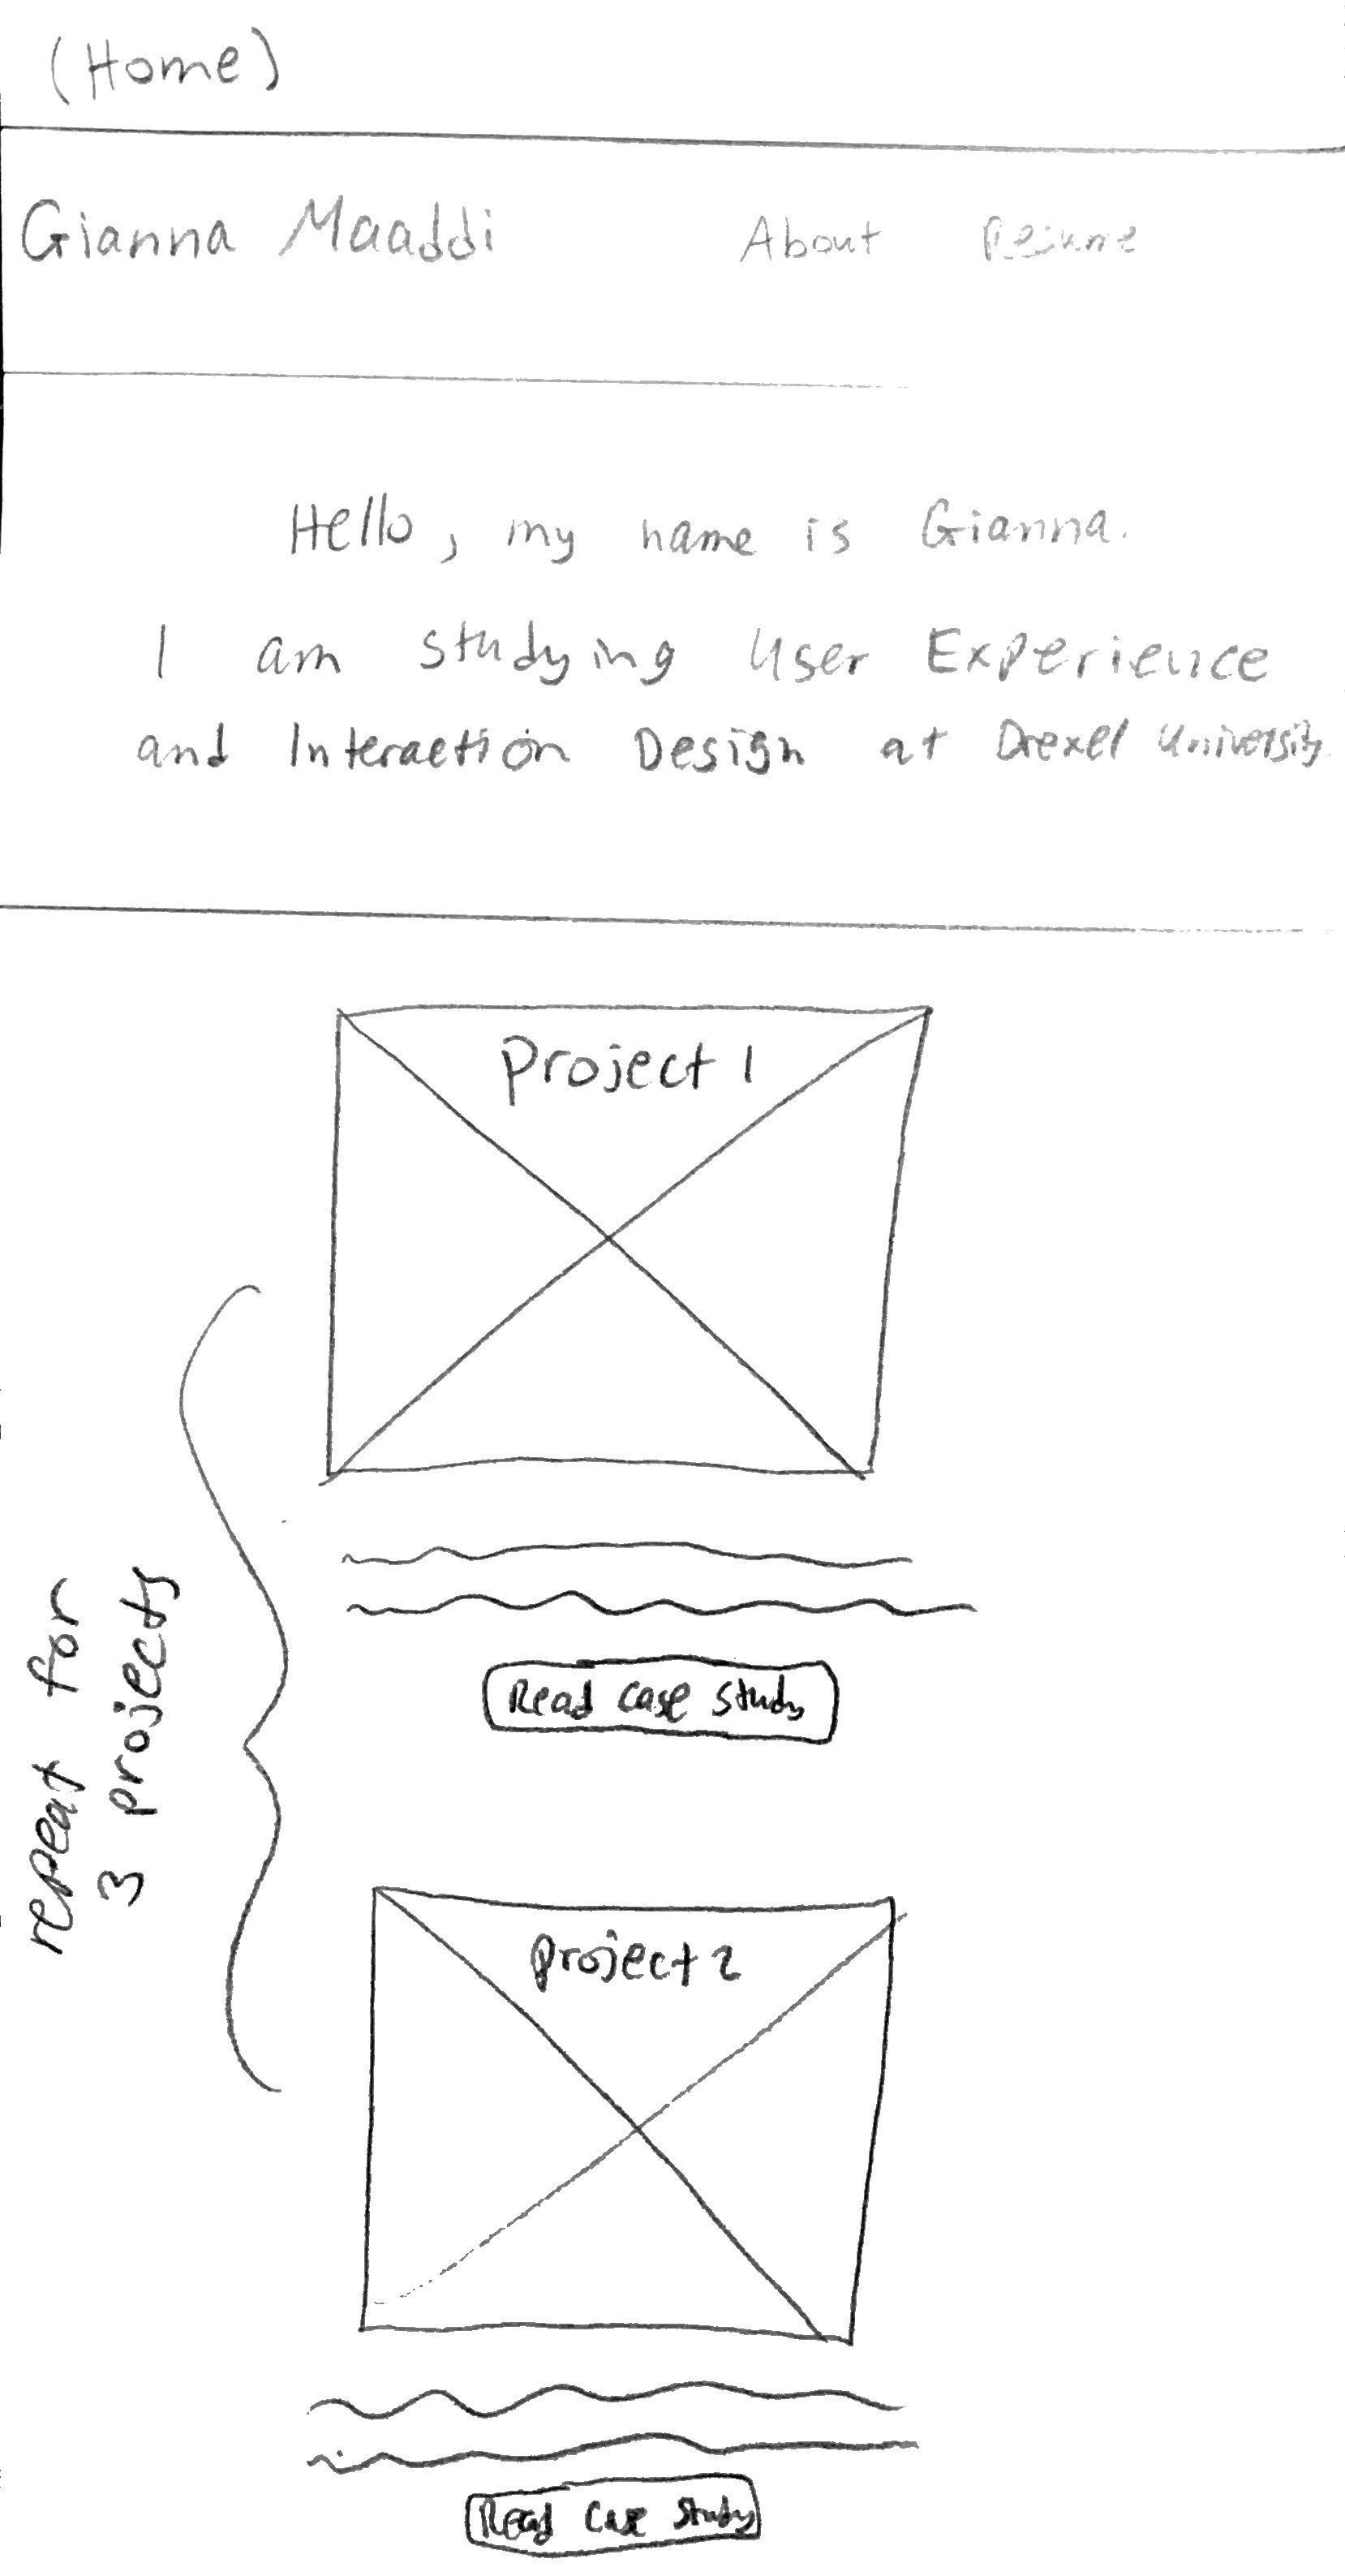 (Home)
Gianna Maaddi About Resume
Hello, my name is Gianna.
I am studying User Experience
and Interaction Design at Drexel University.
Project 1
Read Case Study
repeat for
3 projects
Project 2
Read Case Study